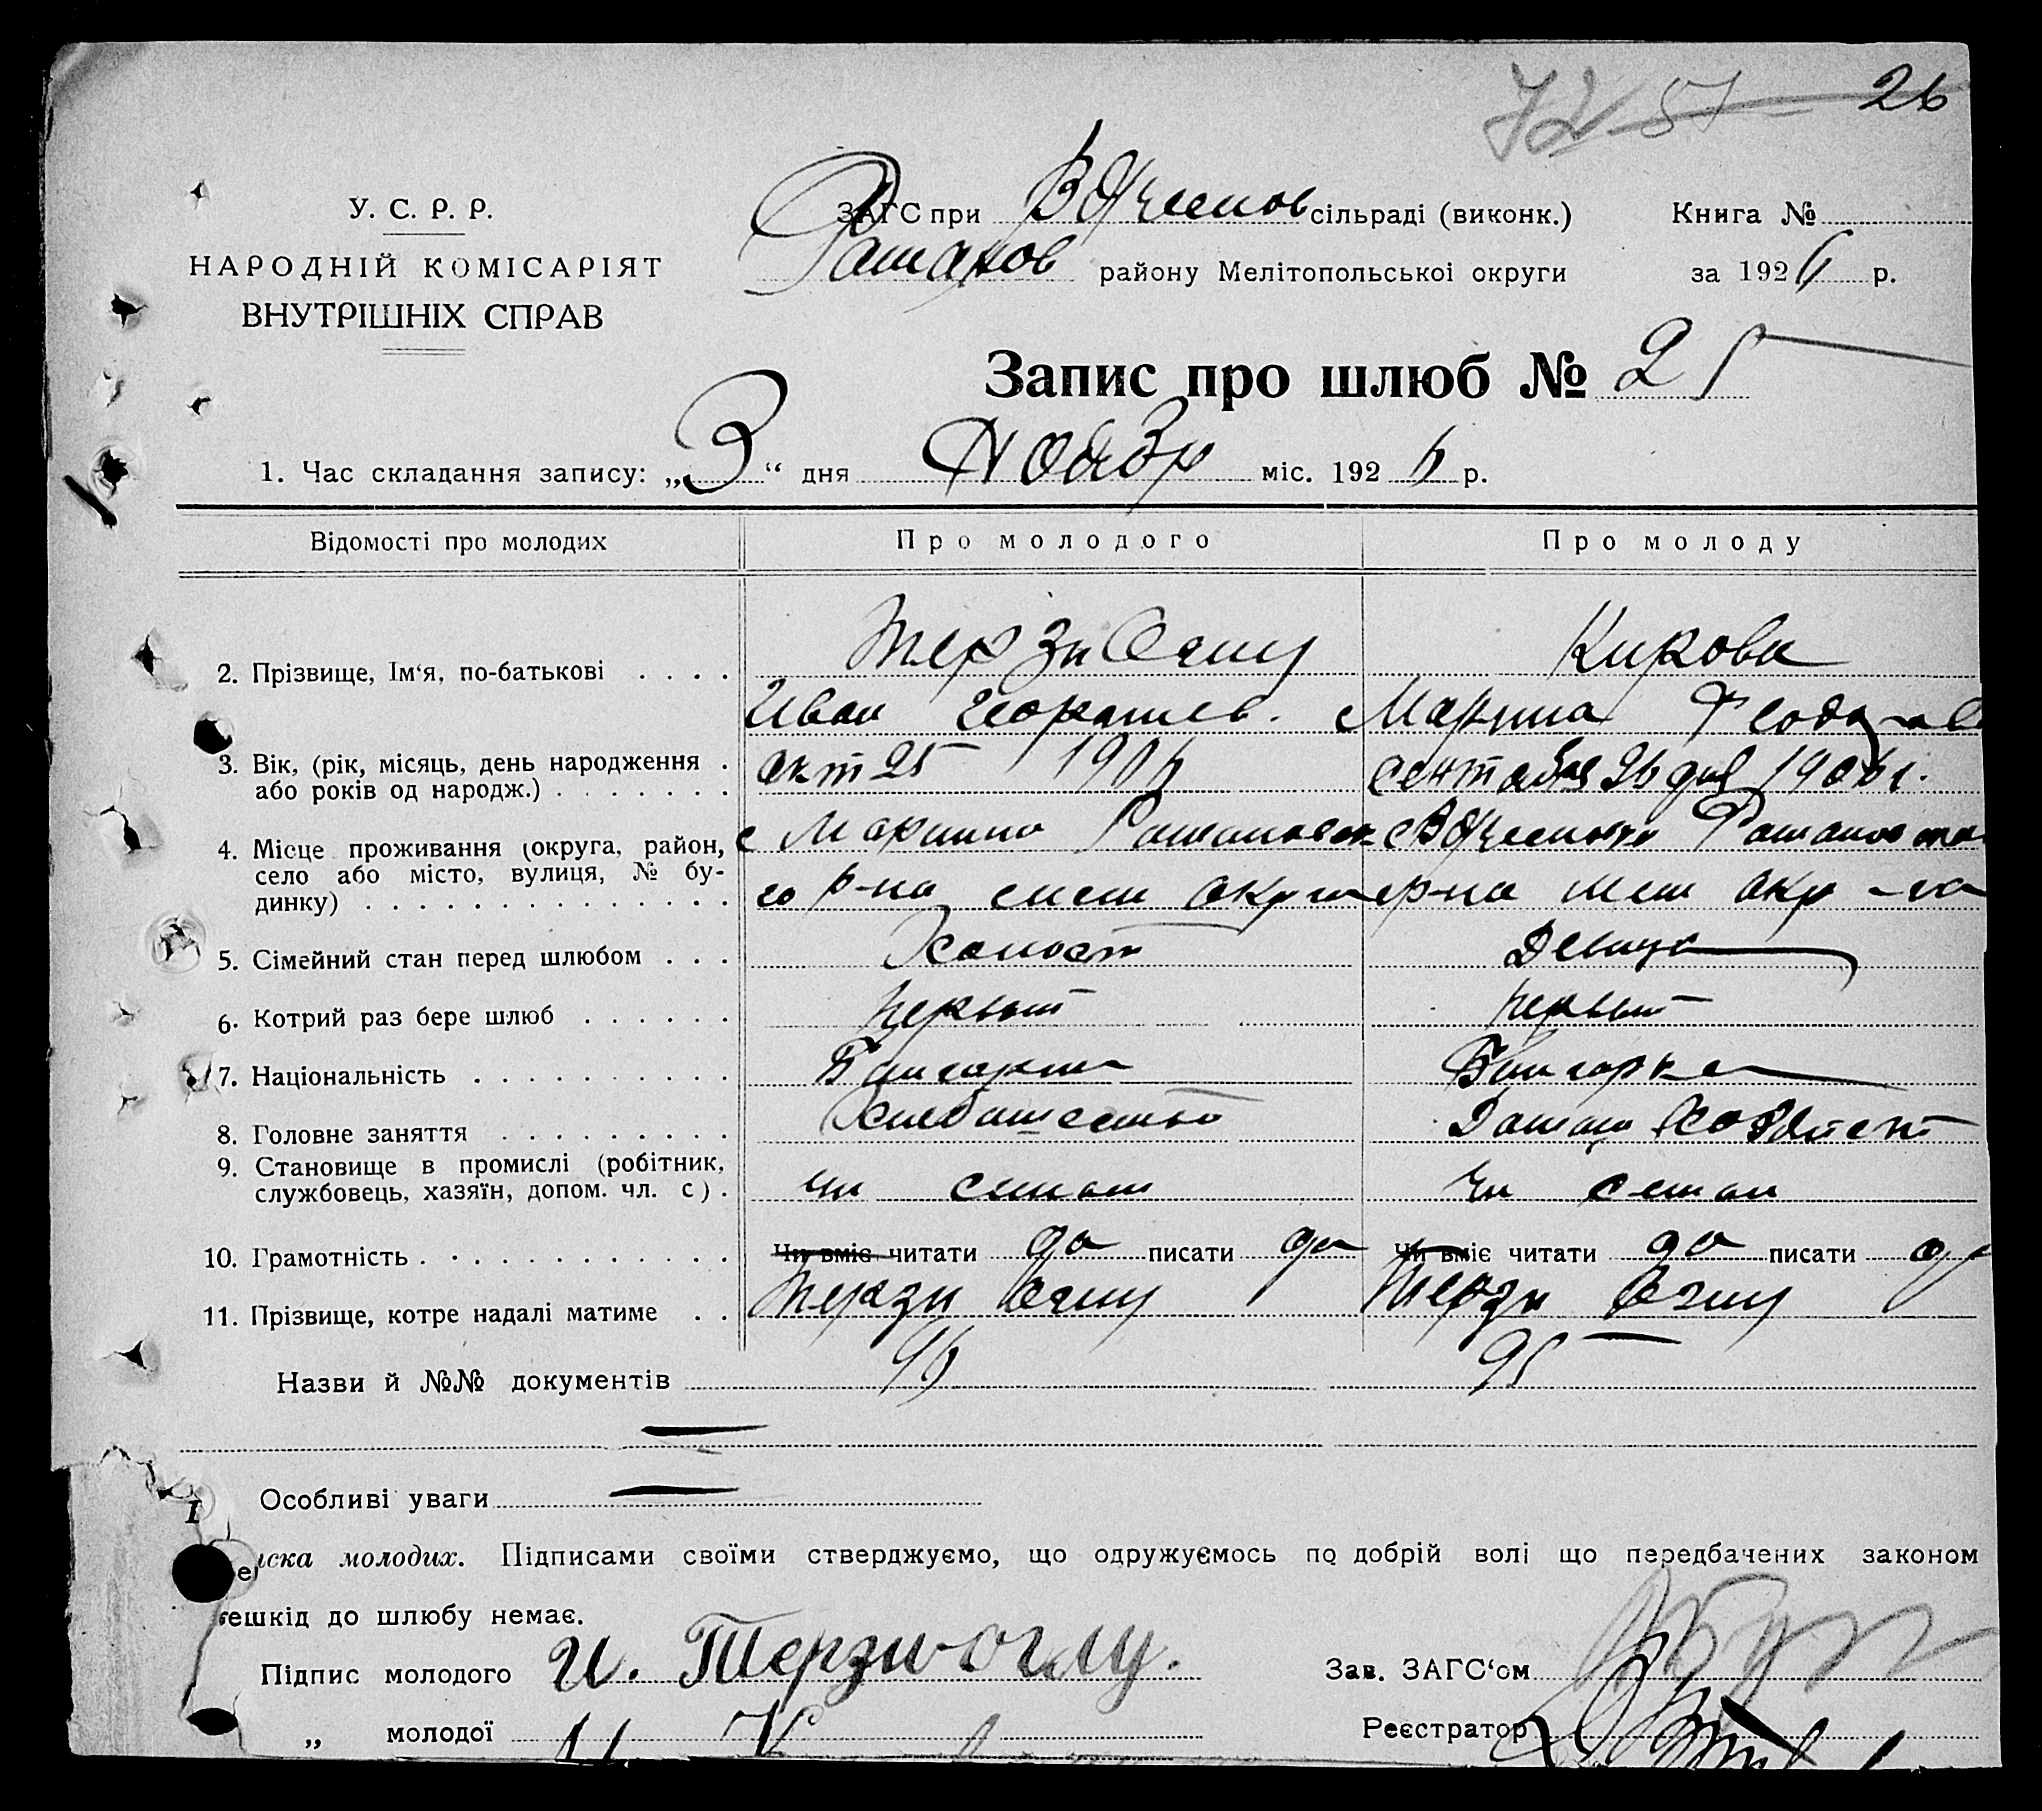 72 57 26
У. С. Р. Р.
НАРОДНІЙ КОМІСАРІЯТ
ВНУТРІШНІХ СПРАВ
ЗАГС при сільраді (виконк.) Книга №
району Мелітопольської округи за 1926 р.
Запис про шлюб № 25
1. Час складання запису: „3“ дня Ноябр міс. 1926 р.
Відомості про молодих Про молодого Про молоду
2. Прізвище, Ім‘я, по-батькові . . . . Терзи Оглу Кирова
Иван Марина
3. Вік, (рік, місяць, день народження . окт 25 1906 сентября 26 дня 1906 г.
або років од народж.) . . . . . . .
4. Місце проживання (округа, район,
село або місто, вулиця, № бу-
динку) . . . . . . . . . . . . . . го р-на мел округи р-на мел окр
5. Сімейний стан перед шлюбом . . . Холост Девица
6. Котрий раз бере шлюб . . . . . . первый первый
7. Національність . . . . . . . . . . Болгарин Болгарка
8. Головне заняття . . . . . . . . . Хлебопашество Домаш
9. Становище в промислі (робітник,
службовець, хазяїн, допом. чл. с) . чл семьи чл семьи
10. Грамотність . . . . . . . . . . . . Чи вміє читати да писати да Чи вміє читати да писати да
11. Прізвище, котре надалі матиме . . Терзи Оглу Терзи Оглу
Назви й №№ документів 96 95
Особливі уваги
иска молодих. Підписами своїми стверджуємо, що одружуємось по добрій волі що передбачених законом
решкід до шлюбу немає.
Підпис молодого И. Терзи-оглу. Зав. ЗАГС‘ом
„ молодої Реєстратор